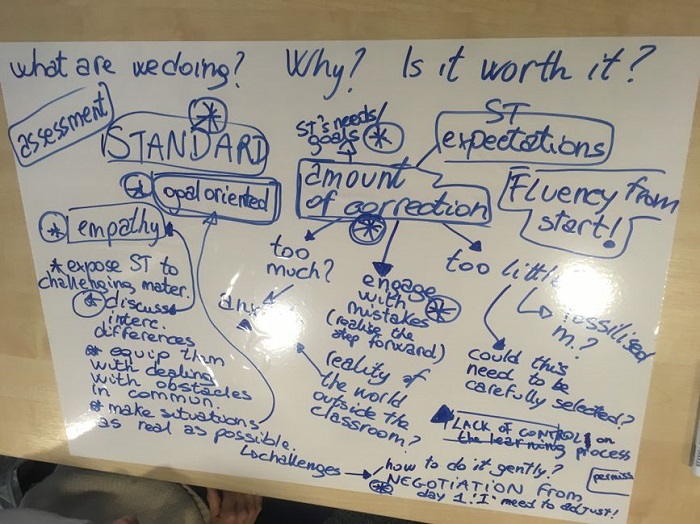 what are we doing? Why? Is it worth it?
assessment
STANDARD
goal oriented
empathy
* expose ST to
challenging mater.
* discuss
interc.
differences
* equip them
with dealing
with obstacles
in commun.
* make situations
as real as possible.
↳challenges
ST's needs/
goals
ST
expectations
amount
of correction
Fluency from
start!
too
much?
engage
with
mistakes
(realise the
step forward)
too little
fossilised
m.?
could this
need to be
carefully selected?
reality of
the world
outside the
classroom?
LACK of CONTROL on
the learning process
how to do it gently?
NEGOTIATION from
day 1! I need to adjust!